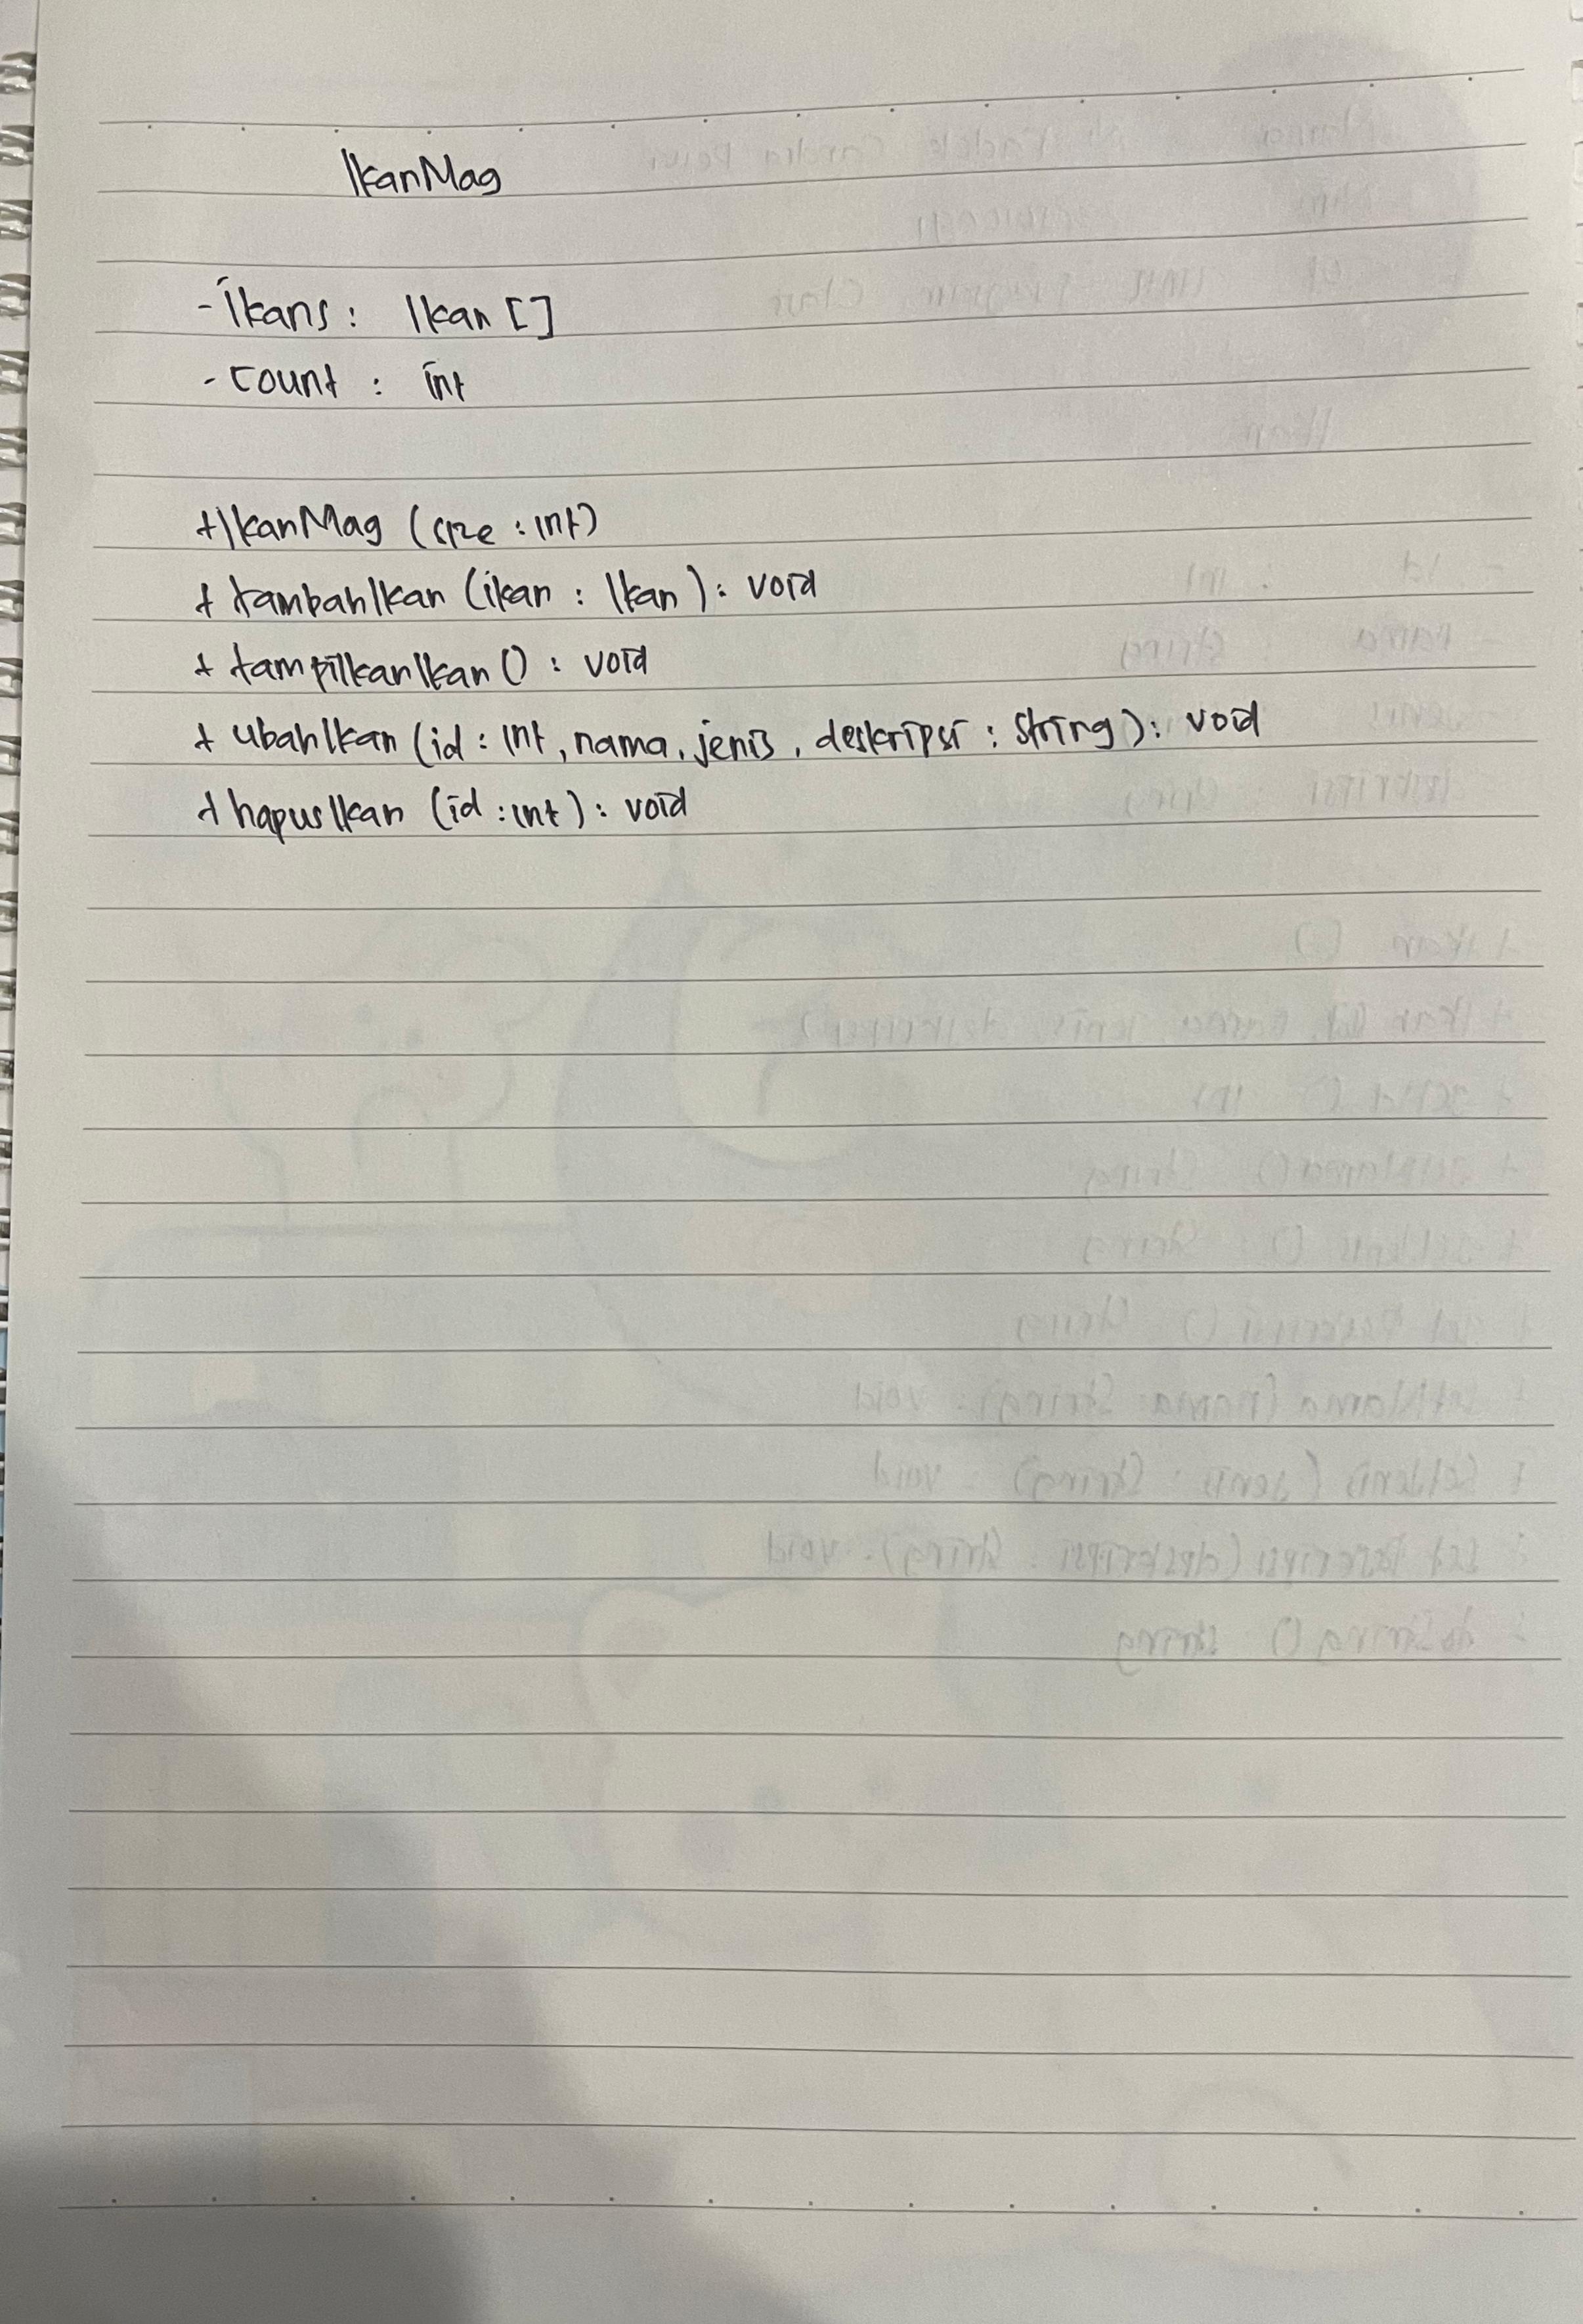 IkanMag
- ikans : Ikan []
- count : int
+ IkanMag (size : int)
+ tambahIkan (ikan : Ikan) : void
+ tampilkanIkan () : void
+ ubahIkan (id : int, nama, jenis, deskripsi : String) : void
+ hapusIkan (id : int) : void